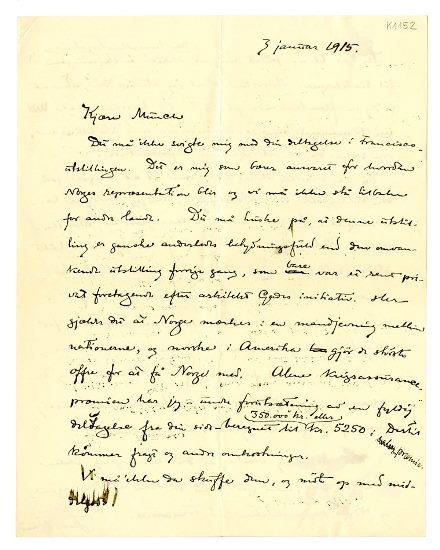 K1152
3 januar 1915.
Kjære Munch
Du må ikke svigte mig med din deltagelse i Francisco-
utstillingen. Det er mig som bærer ansvaret for hvordan
Norges repræsentation blir og vi må ikke stå tilbake
for andre lande. Du må huske på, at denne utstil-
ling er ganske anderledes betydningsfuld end den
utstilling forrige gang, som bare var et rent pri-
vat foretagende efter arkitekt initiativ. Her
gjælder det at Norge mærkes i en mandjevning mellem
nationerne, og norske i Amerika gjør de største
offre for at få Norge med. Alene Krigsassurance
præmien har jeg under forutsætning av en fyldig
deltagelse fra din side beregnet til Kr. 5250;
350.000 kr.
kommer fragt og andre omkostninger.
Vi må ikke da skuffe dem, og møte op med